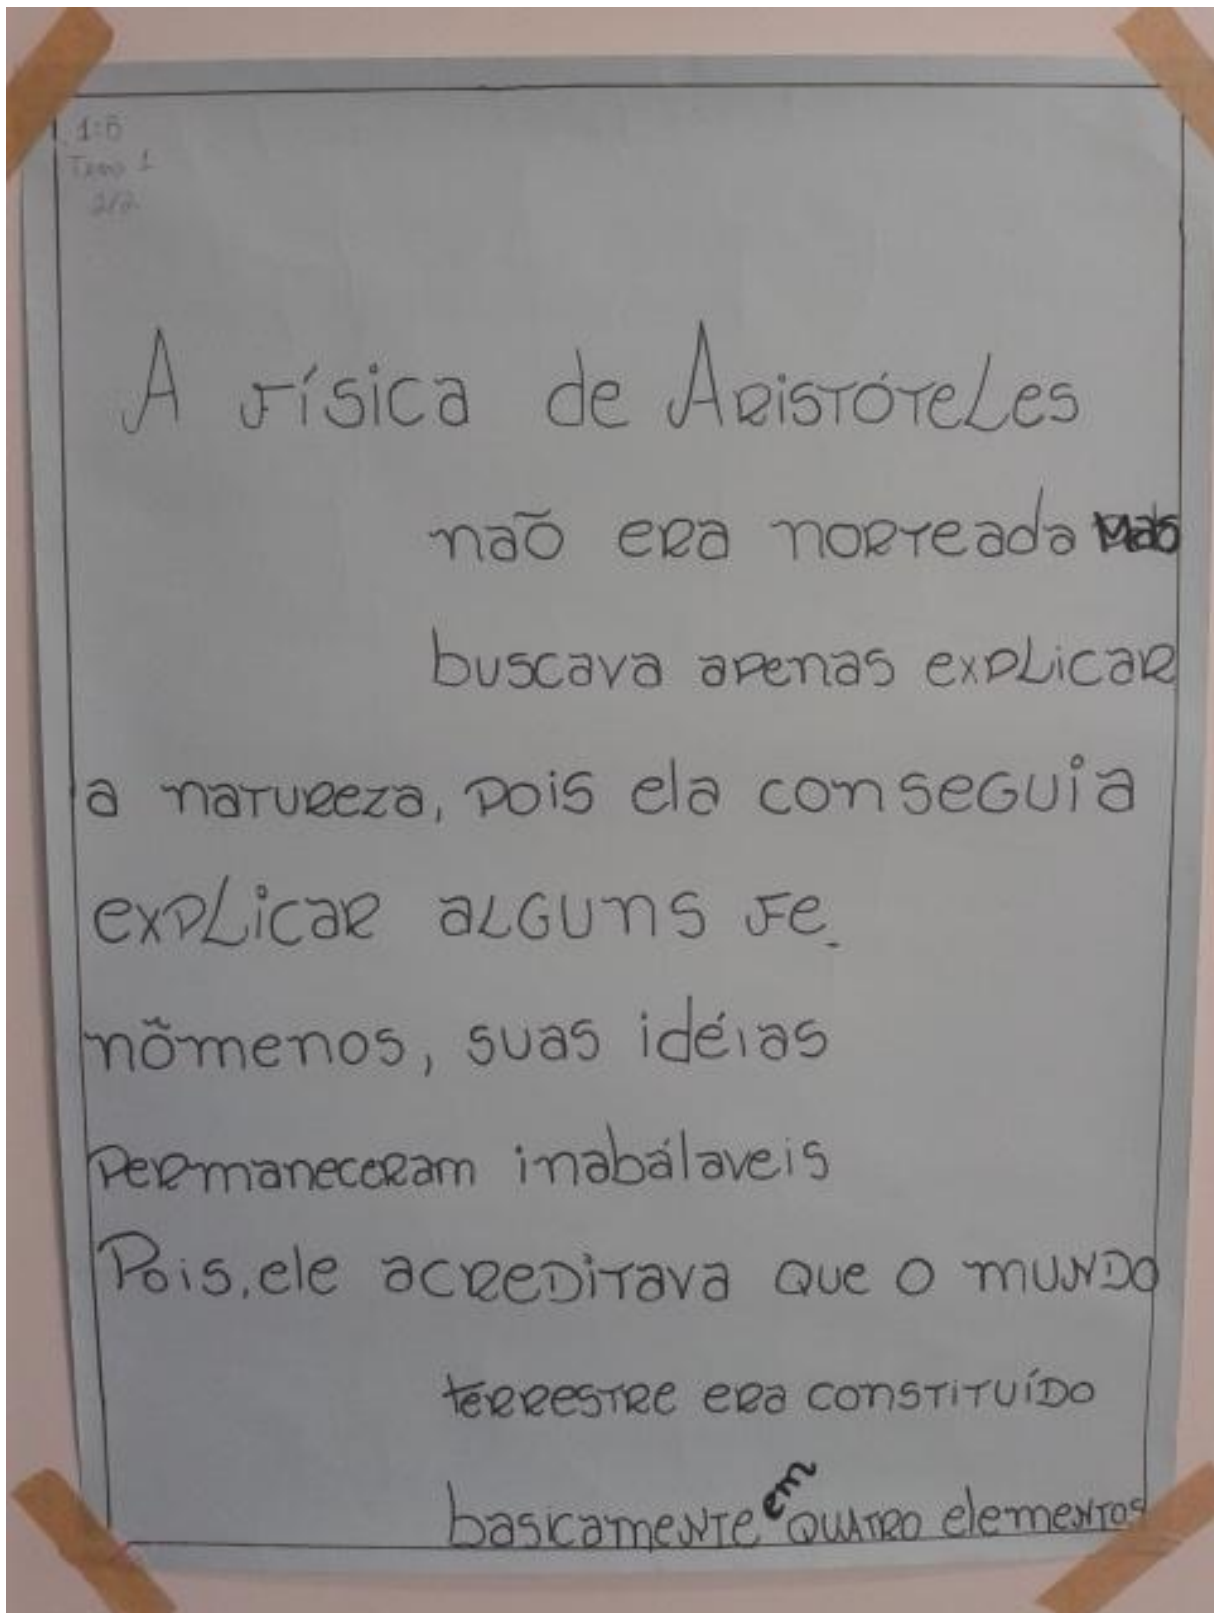 1:B
Tema 1
2/2
A física de Aristóteles
não era norteada mas
buscava apenas explicar
a natureza, pois ela conseguia
explicar alguns fe_
nômenos, suas idéias
permaneceram inabálaveis
Pois, ele acreditava que o mundo
terrestre era constituído
basicamente em quatro elementos